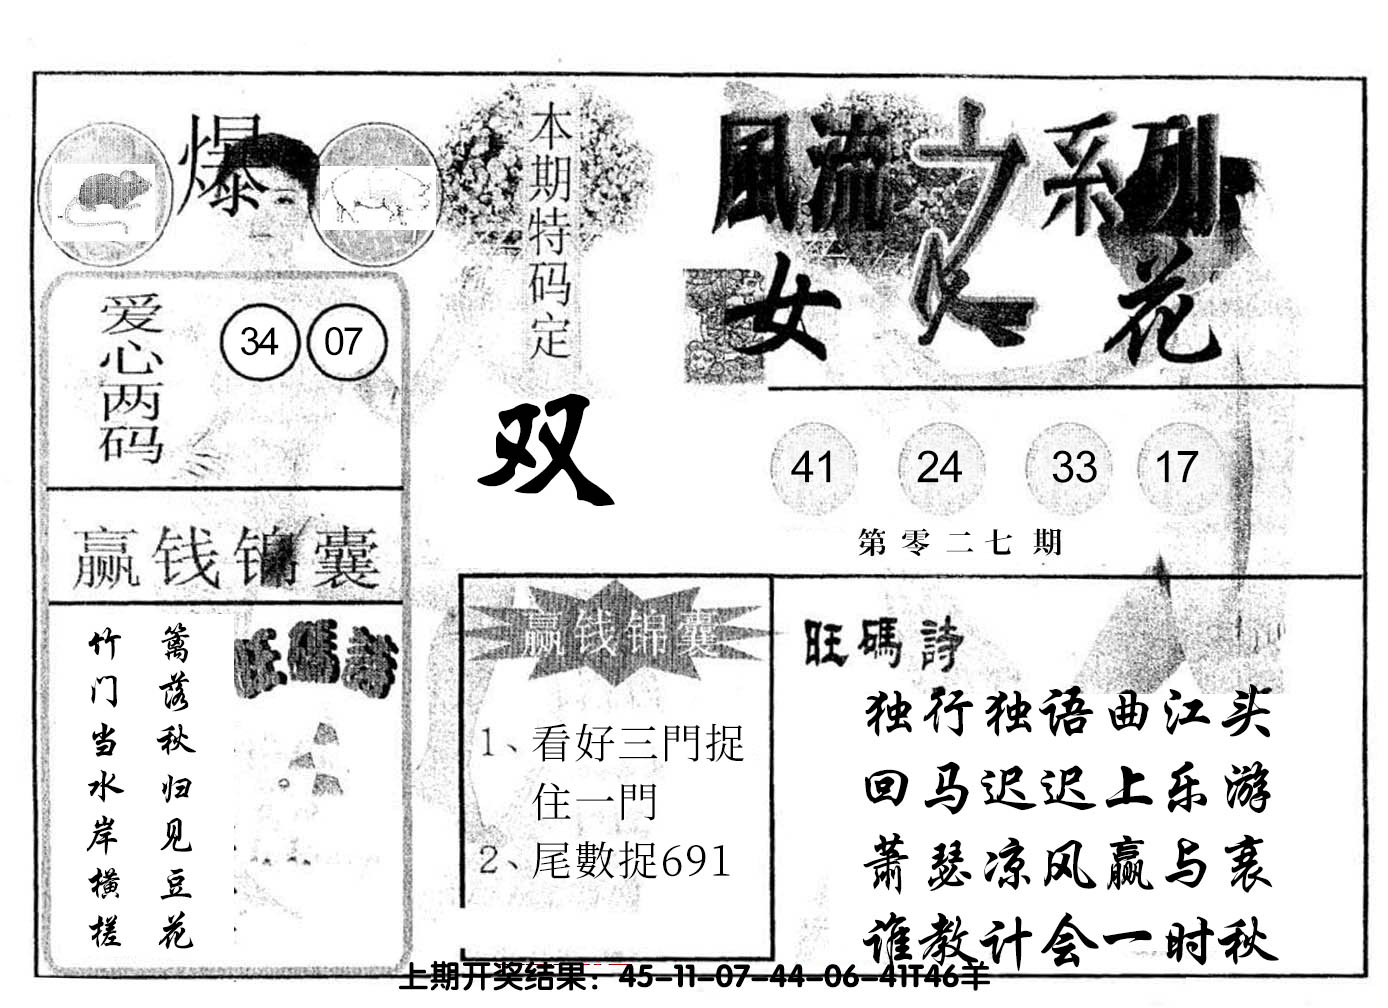 爆
爱心两码
34 07
赢钱锦囊
篱落秋归见豆花
竹门当水岸横槎
旺碼詩
本期特码定
双
赢钱锦囊
1、看好三門捉
住一門
2、尾數捉691
風流之系列
女人花
41 24 33 17
第零二七期
旺碼詩
独行独语曲江头
回马迟迟上乐游
萧瑟凉风赢与衰
谁教计会一时秋
上期开奖结果：45-11-07-44-06-41T46羊